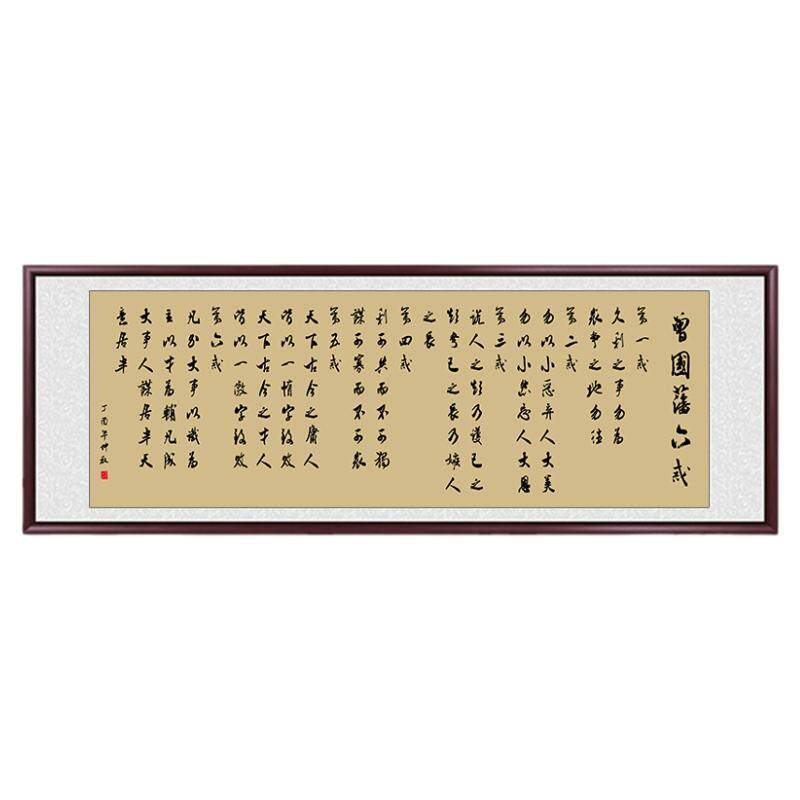 曾國藩六戒
第一戒
久利之事勿為
衆爭之地勿往
第二戒
勿以小惡弃人大美
勿以小怨忘人大恩
第三戒
說人之短乃護己之
短夸己之長乃嫉人
之長
第四戒
利可共而不可獨
謀可寡而不可衆
第五戒
天下古今之庸人
皆以一惰字致敗
天下古今之才人
皆以一傲字致敗
第六戒
凡办大事以識為
主以才為輔凡成
大事人謀居半天
意居半
丁酉年仲秋